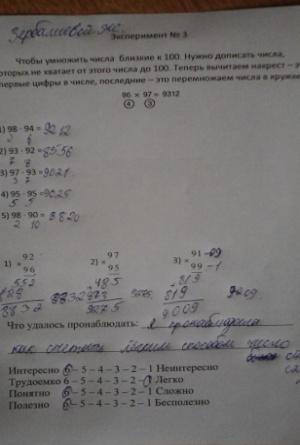 Эксперимент № 3
Чтобы умножить числа близкие к 100. Нужно дописать числа,
которых не хватает от этого числа до 100. Теперь вычитаем накрест –
первые цифры в числе, последние – это перемножаем числа в кружа
96 × 97 = 9312
④ ③
1) 98 · 94 = 9212
2 6
2) 93 · 92 = 8556
7 8
3) 97 · 93 = 9021
3 7
4) 95 · 95 = 9025
5 5
5) 98 · 90 = 8820
2 10
1) × 92 2) × 97 3) × 91 – 9
96 95 99 – 1
552 485 819
828 873 819
8832 8832 9009
Что удалось пронаблюдать: я пронаблюдала
как считать способом число
Интересно 6 – 5 – 4 – 3 – 2 – 1 Неинтересно
Трудоемко 6 – 5 – 4 – 3 – 2 – 1 Легко
Понятно 6 – 5 – 4 – 3 – 2 – 1 Сложно
Полезно 6 – 5 – 4 – 3 – 2 – 1 Бесполезно